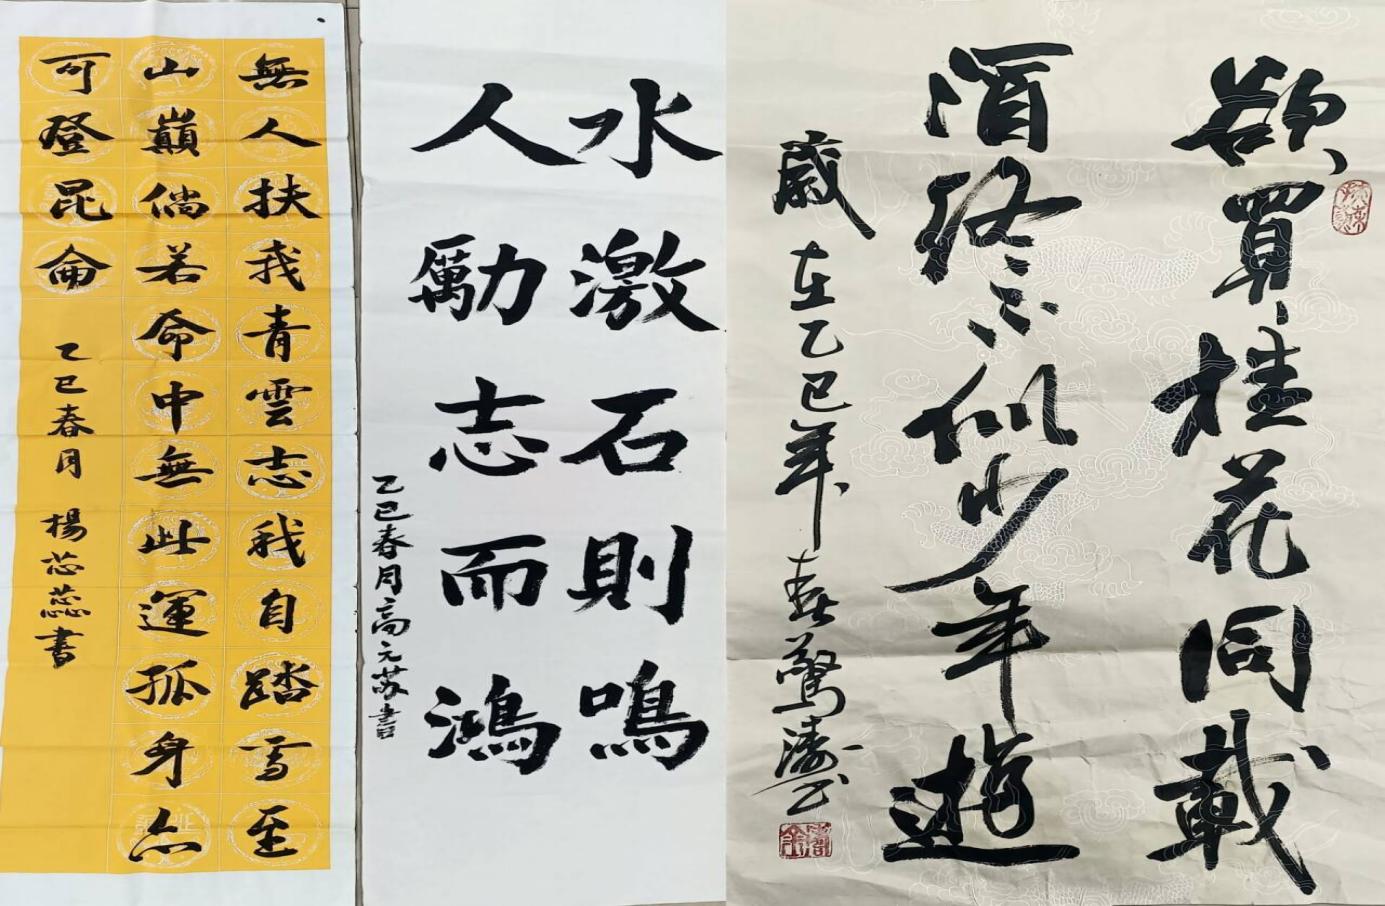 無人扶我青雲志我自踏雪至
山巔倘若命中無此運孤身亦
可登昆侖
乙巳春月 楊芯蕊書
水激石則鳴
人勵志而鴻
乙巳春月高元書
欲買桂花同載
酒終不似少年遊
歲在乙巳年春驚濤書